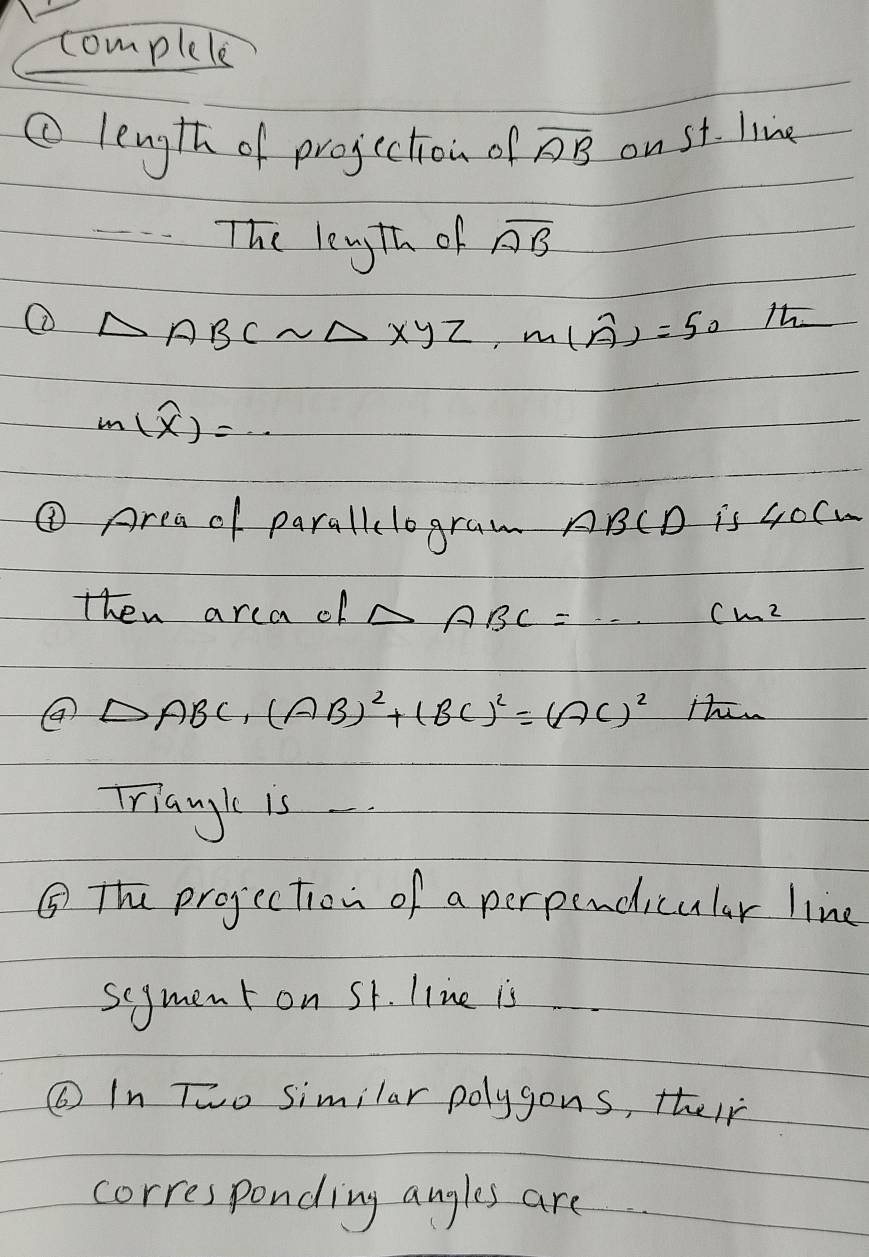 Complete
① length of projection of A̅B̅ on st. line
---- The length of A̅B̅
② △ ABC ~ △ XYZ, m(Â) = 50 th
m(X̂) = ..
③ Area of parallelogram ABCD is 40cm
Then area of △ ABC = ... cm²
④ △ABC, (AB)² + (BC)² = (AC)² then
Triangle is ...
⑤ The projection of a perpendicular line
segment on st. line is ...
⑥ In Two similar polygons, their
corresponding angles are ...